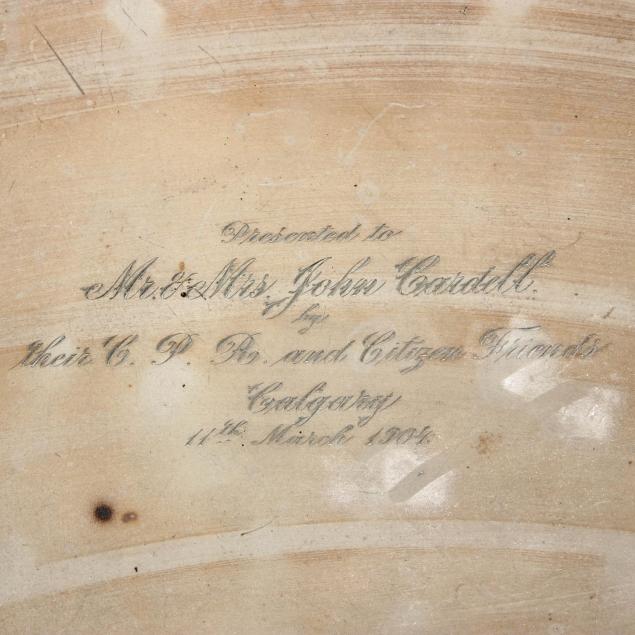 Presented to
Mr. & Mrs. John Cardell.
by
their C. P. R. and Citizen Friends
Calgary
11th March 1904.